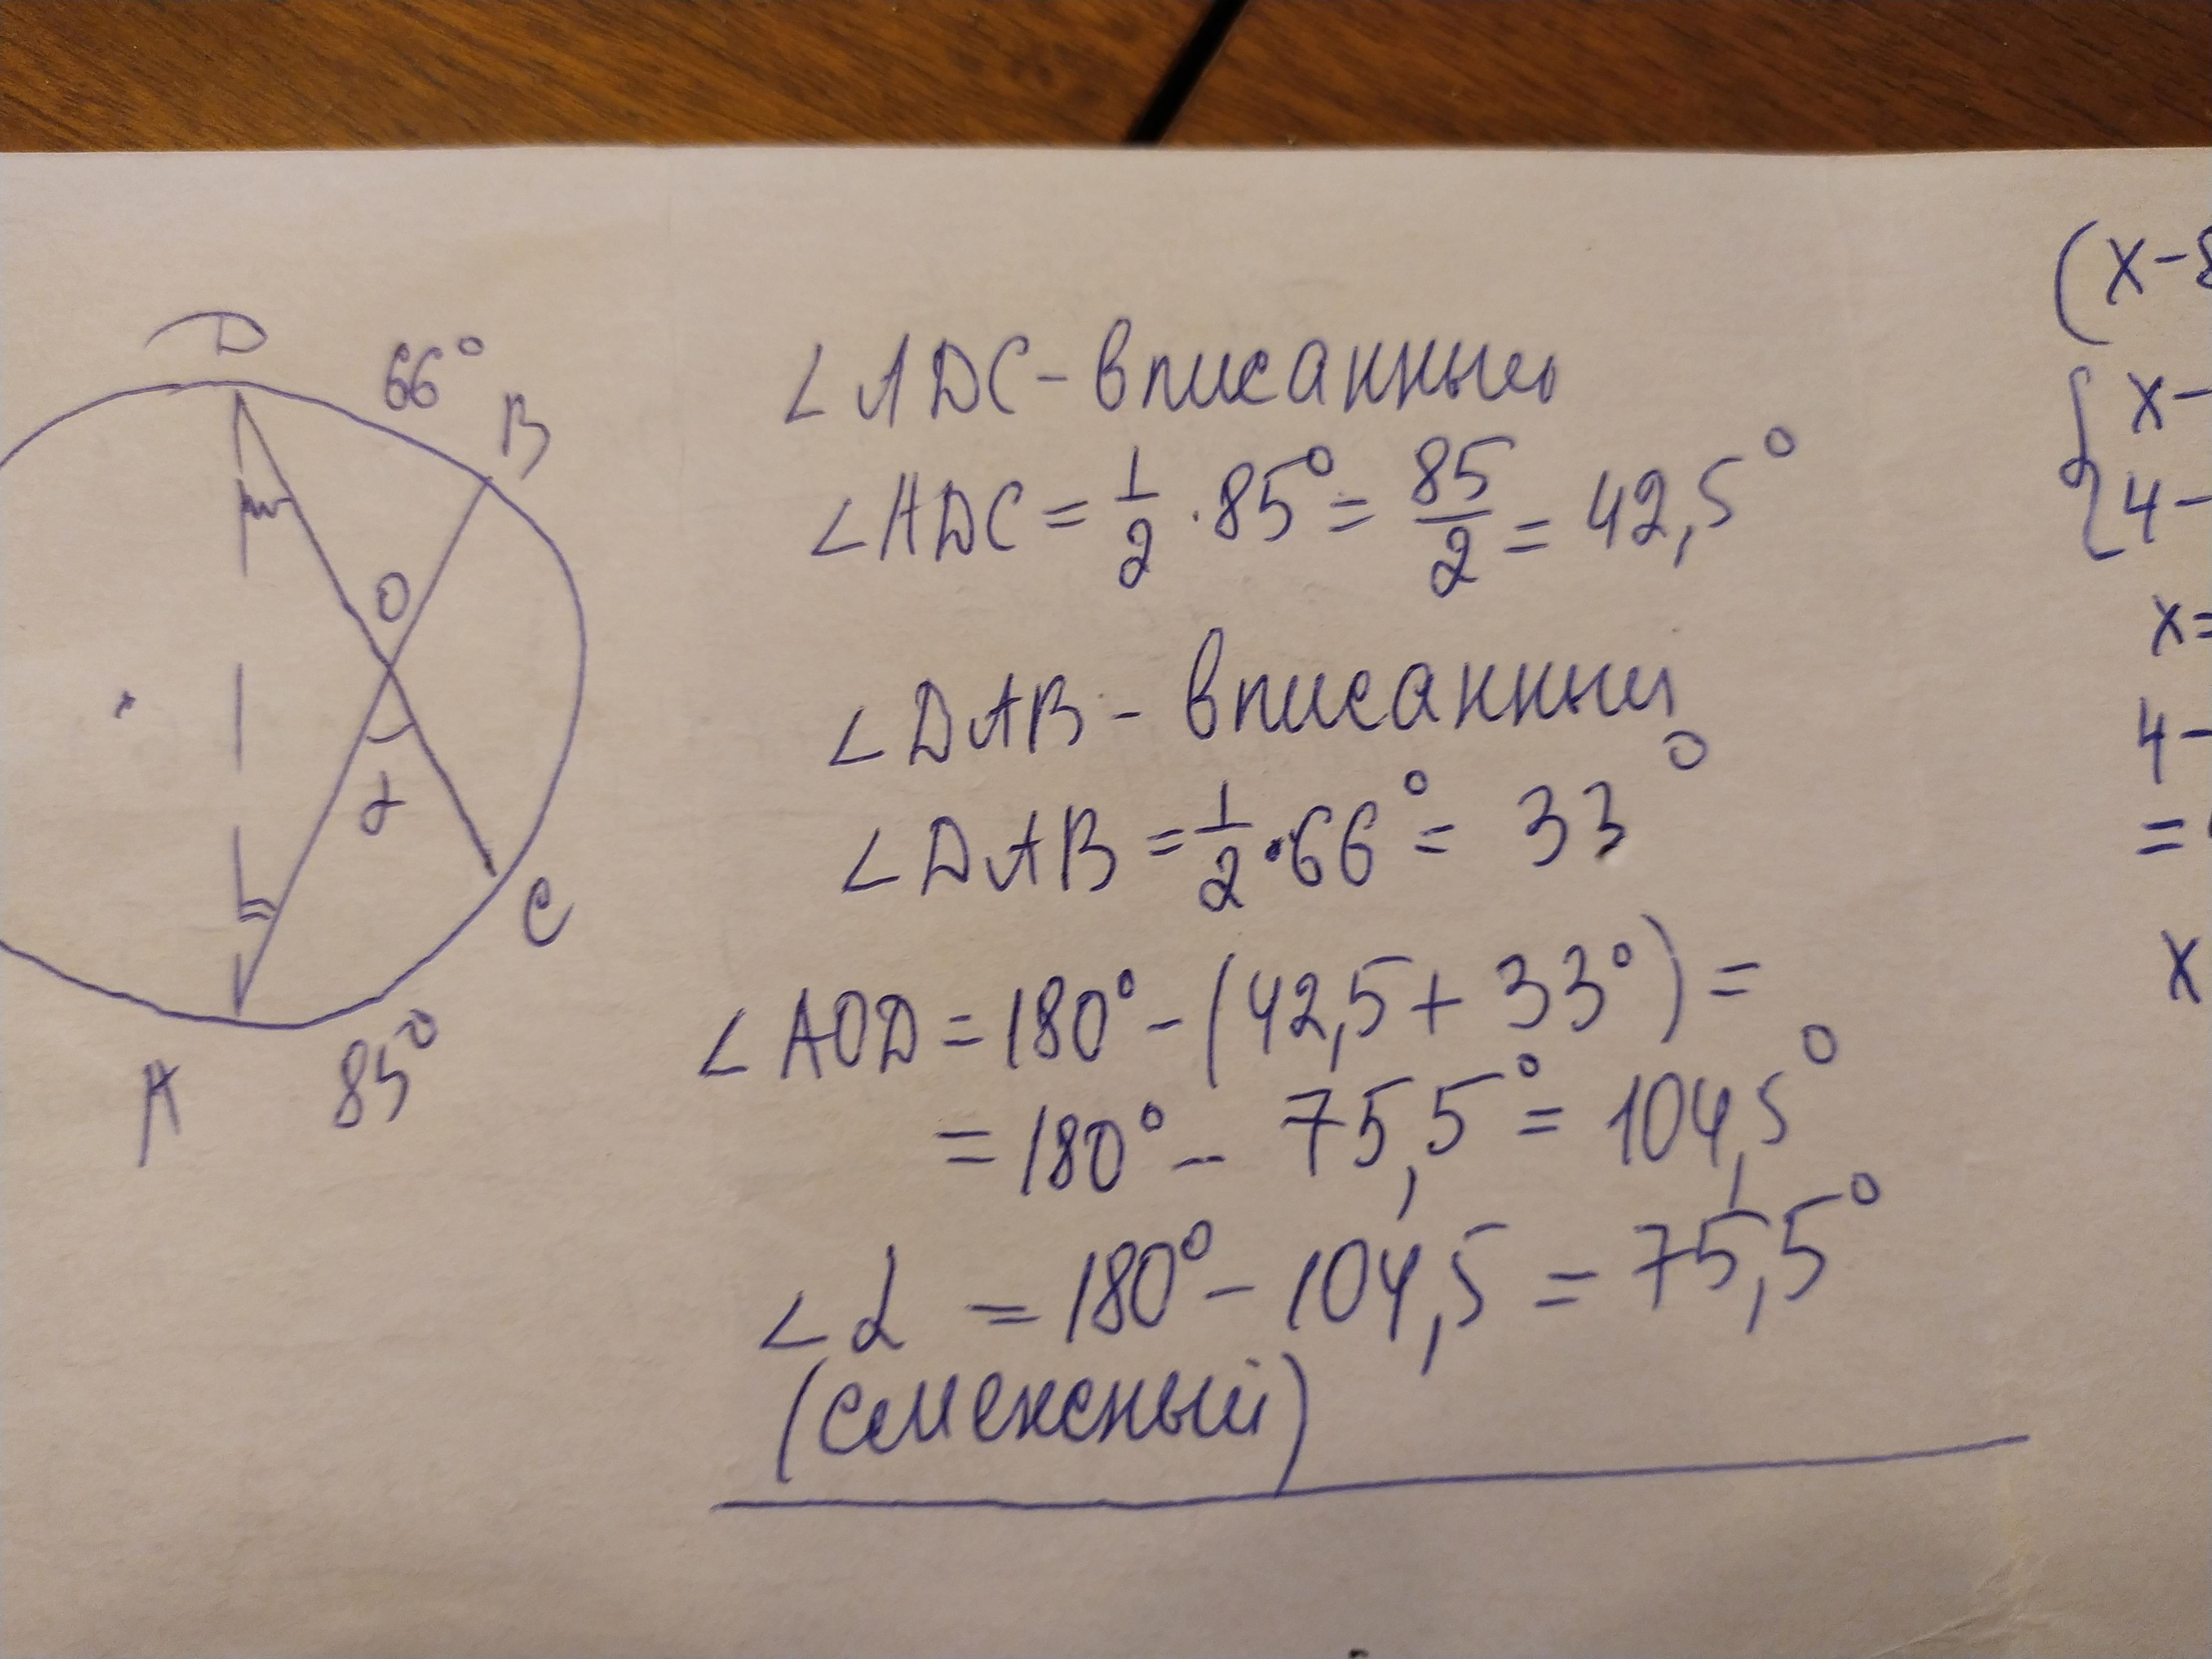 D
66°
B
O
α
C
A
85°
∠ADC - вписанный
∠ADC = 1/2 · 85° = 85/2 = 42,5°
∠DAB - вписанный
∠DAB = 1/2 · 66° = 33°
∠AOD = 180° - (42,5 + 33°) =
= 180° - 75,5° = 104,5°
∠α = 180° - 104,5 = 75,5°
(смежный)
(x-8
{ x-
4-
x=
4-
=
x